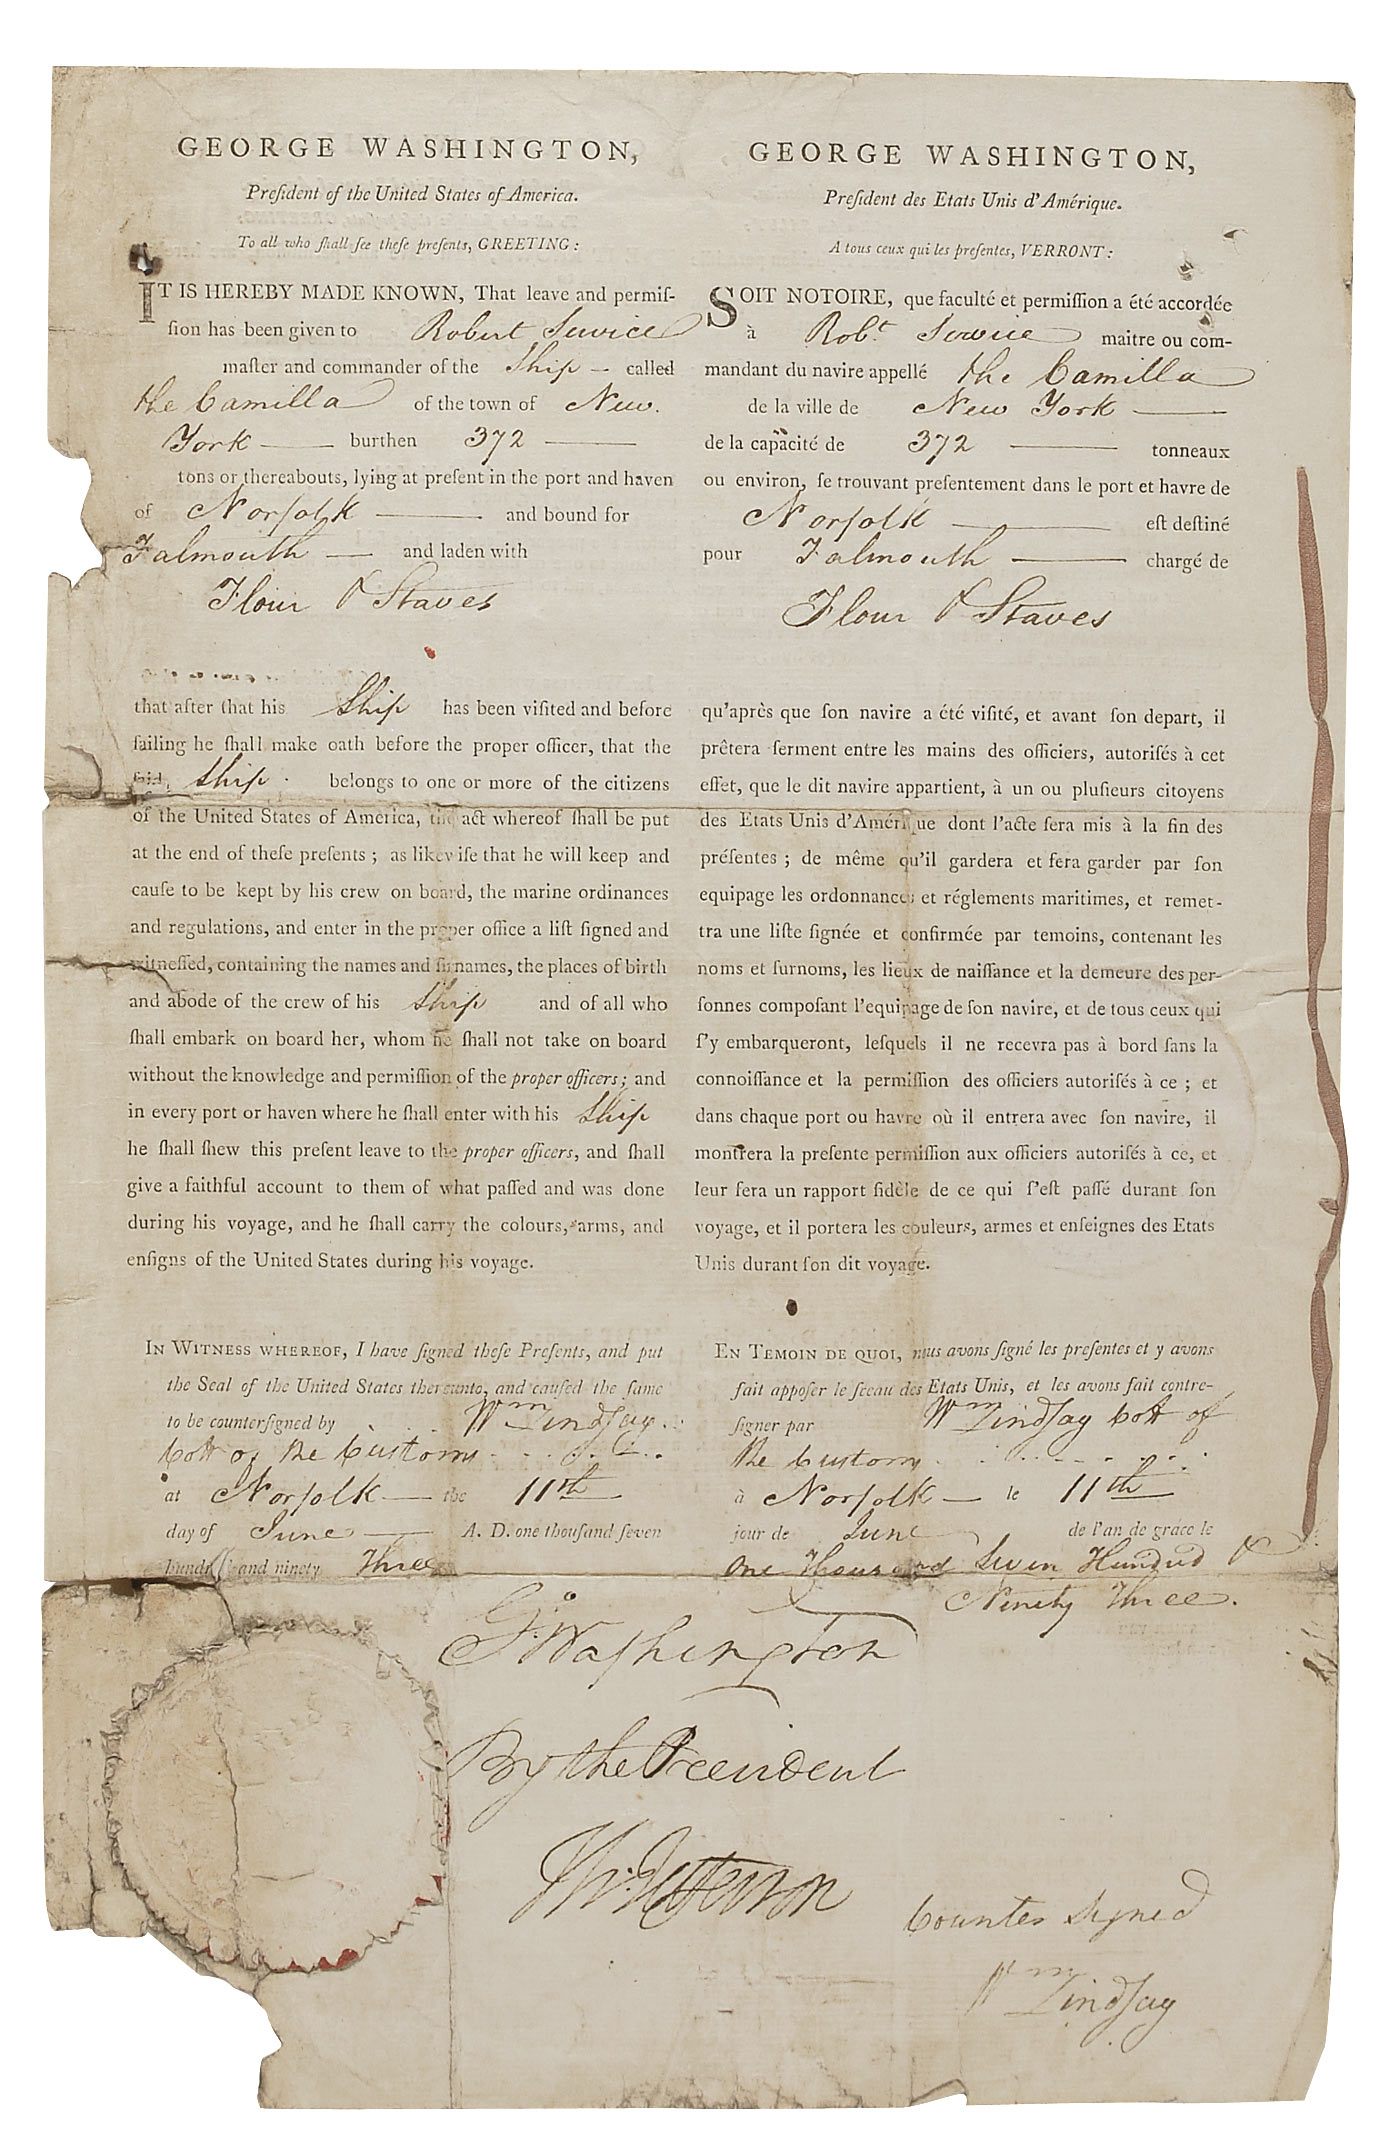 GEORGE WASHINGTON,
Preſident of the United States of America.
To all who ſhall ſee theſe preſents, GREETING:
IT IS HEREBY MADE KNOWN, That leave and permiſ-
ſion has been given to Robert Service
maſter and commander of the Ship — called
the Camilla of the town of New
York — burthen 372 —
tons or thereabouts, lying at preſent in the port and haven
of Norfolk — and bound for
Falmouth — and laden with
Flour & Staves
that after that his Ship has been viſited and before
ſailing he ſhall make oath before the proper officer, that the
ſaid Ship belongs to one or more of the citizens
of the United States of America, the act whereof ſhall be put
at the end of theſe preſents ; as likewiſe that he will keep and
cauſe to be kept by his crew on board, the marine ordinances
and regulations, and enter in the proper office a liſt ſigned and
witneſſed, containing the names and ſirnames, the places of birth
and abode of the crew of his Ship and of all who
ſhall embark on board her, whom he ſhall not take on board
without the knowledge and permiſſion of the proper officers; and
in every port or haven where he ſhall enter with his Ship
he ſhall ſhew this preſent leave to the proper officers, and ſhall
give a faithful account to them of what paſſed and was done
during his voyage, and he ſhall carry the colours, arms, and
enſigns of the United States during his voyage.
IN WITNESS WHEREOF, I have ſigned theſe Preſents, and put
the Seal of the United States thereunto, and cauſed the ſame
to be counterſigned by Wm Lindſay
Coll of the Customs
at Norfolk — the 11th
day of June — A. D. one thouſand ſeven
hundred and ninety Three
GEORGE WASHINGTON,
Preſident des Etats Unis d'Amérique.
A tous ceux qui les preſentes, VERRONT:
SOIT NOTOIRE, que faculté et permiſſion a été accordée
à Robt. Service maitre ou com-
mandant du navire appellé the Camilla
de la ville de New York —
de la capacité de 372 — tonneaux
ou environ, ſe trouvant preſentement dans le port et havre de
Norfolk — eſt deſtiné
pour Falmouth — chargé de
Flour & Staves
qu'après que ſon navire a été viſité, et avant ſon depart, il
prêtera ſerment entre les mains des officiers, autoriſés à cet
effet, que le dit navire appartient, à un ou pluſieurs citoyens
des Etats Unis d'Amérique dont l'acte ſera mis à la fin des
préſentes ; de même qu'il gardera et fera garder par ſon
equipage les ordonnances et réglements maritimes, et remet-
tra une liſte ſignée et confirmée par temoins, contenant les
noms et ſurnoms, les lieux de naiſſance et la demeure des per-
ſonnes compoſant l'equipage de ſon navire, et de tous ceux qui
ſ'y embarqueront, leſquels il ne recevra pas à bord ſans la
connoiſſance et la permiſſion des officiers autoriſés à ce ; et
dans chaque port ou havre où il entrera avec ſon navire, il
montrera la preſente permiſſion aux officiers autoriſés à ce, et
leur fera un rapport fidèle de ce qui ſ'eſt paſſé durant ſon
voyage, et il portera les couleurs, armes et enſeignes des Etats
Unis durant ſon dit voyage.
EN TEMOIN DE QUOI, nous avons ſigné les preſentes et y avons
fait appoſer le ſceau des Etats Unis, et les avons fait contre-
ſigner par Wm Lindſay Coll of
the Customs
à Norfolk — le 11th
jour de June de l'an de grace le
One Thousand Seven Hundred &
Ninety Three.
Go: Washington
By the President
Th: Jefferson
Counter Signed
Wm Lindſay